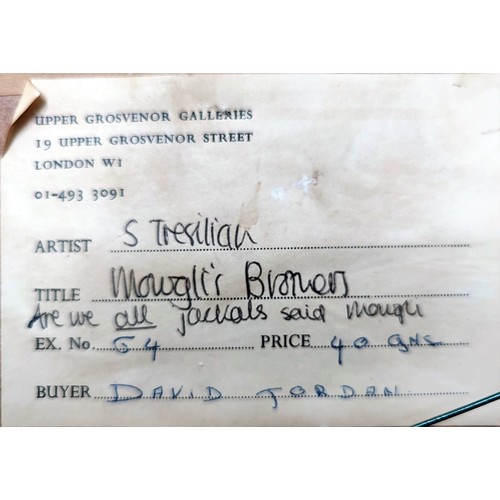 UPPER GROSVENOR GALLERIES
19 UPPER GROSVENOR STREET
LONDON W1
01-493 3091
ARTIST S Tresilian
TITLE Mowgli's Brothers
Are we all jackals said Mowgli
EX. No 54 PRICE 40 gns
BUYER DAVID JORDAN